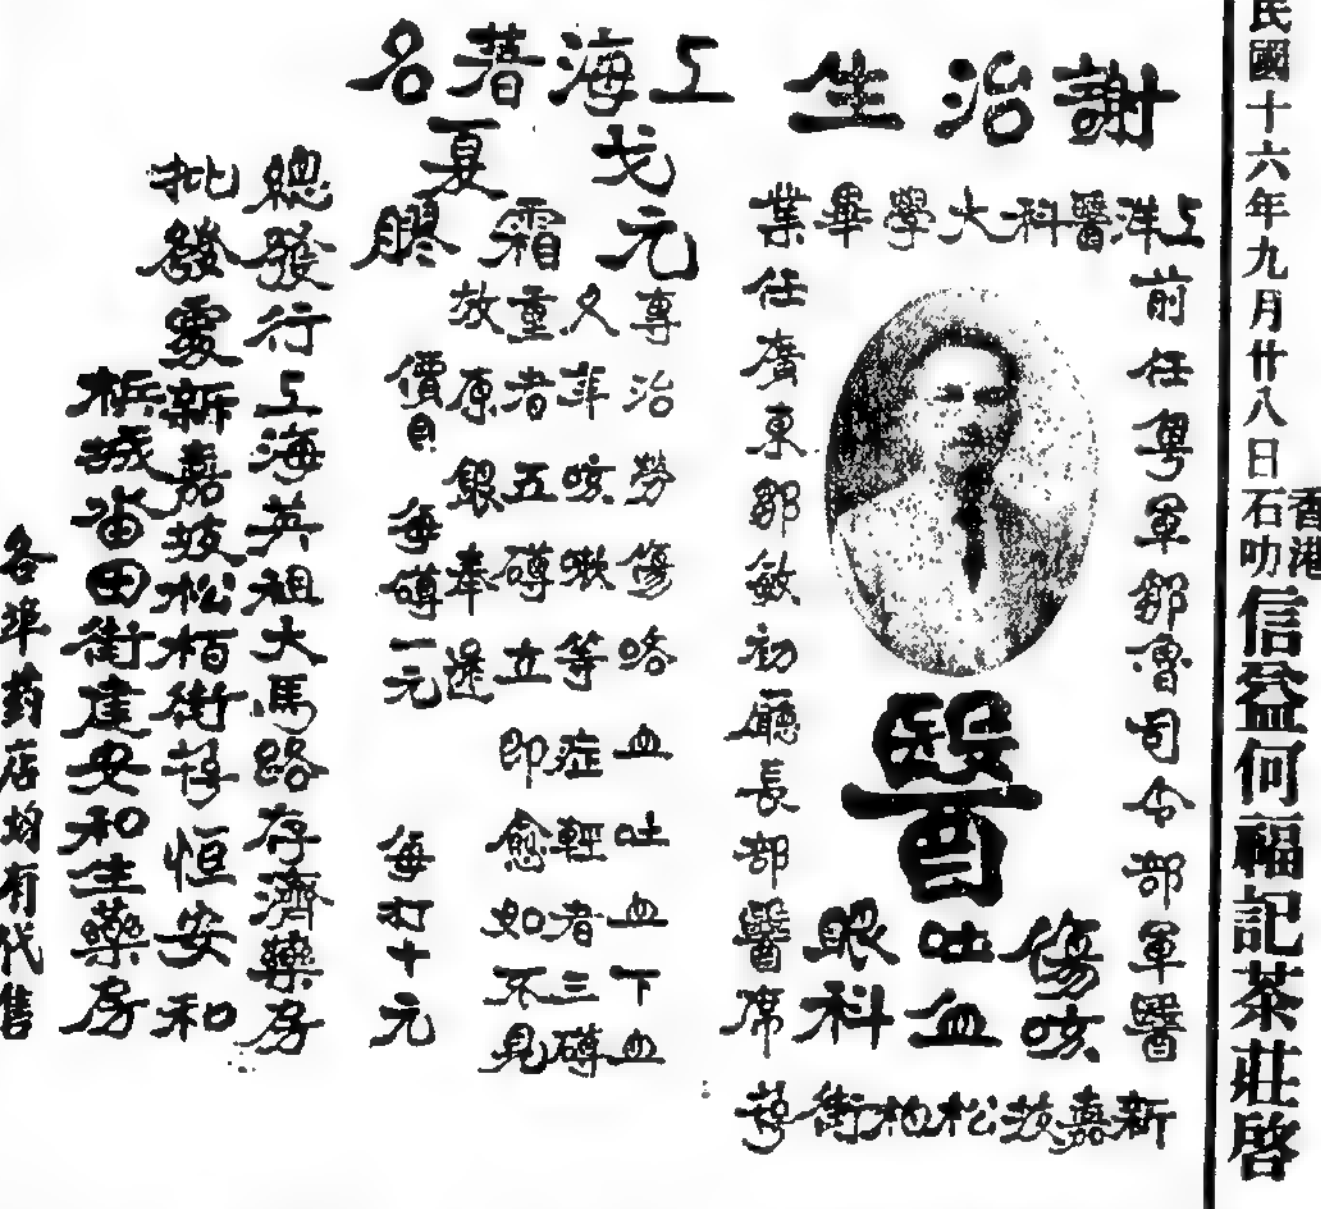 民國十六年九月廿八日
香港
石叻
信益何福記茶莊啓
謝治生
上洋醫科大學畢業
前任粵軍鄒魯司令部軍醫
任廣東鄒敏初廳長部醫席
醫
傷咳
吐血
眼科
新嘉坡松柏街
上海著名
戈元
夏
霜
膠
專治勞傷咯血吐血下血
久年咳嗽等症輕者三磚
重者五磚立即愈如不見
放原銀奉送
價目
每磚一元
每打十元
總發行上海英祖大馬路存濟藥房
批發處新嘉坡松栢街恒安和
梹城畓田街建安和生藥房
各埠葯店均有代售